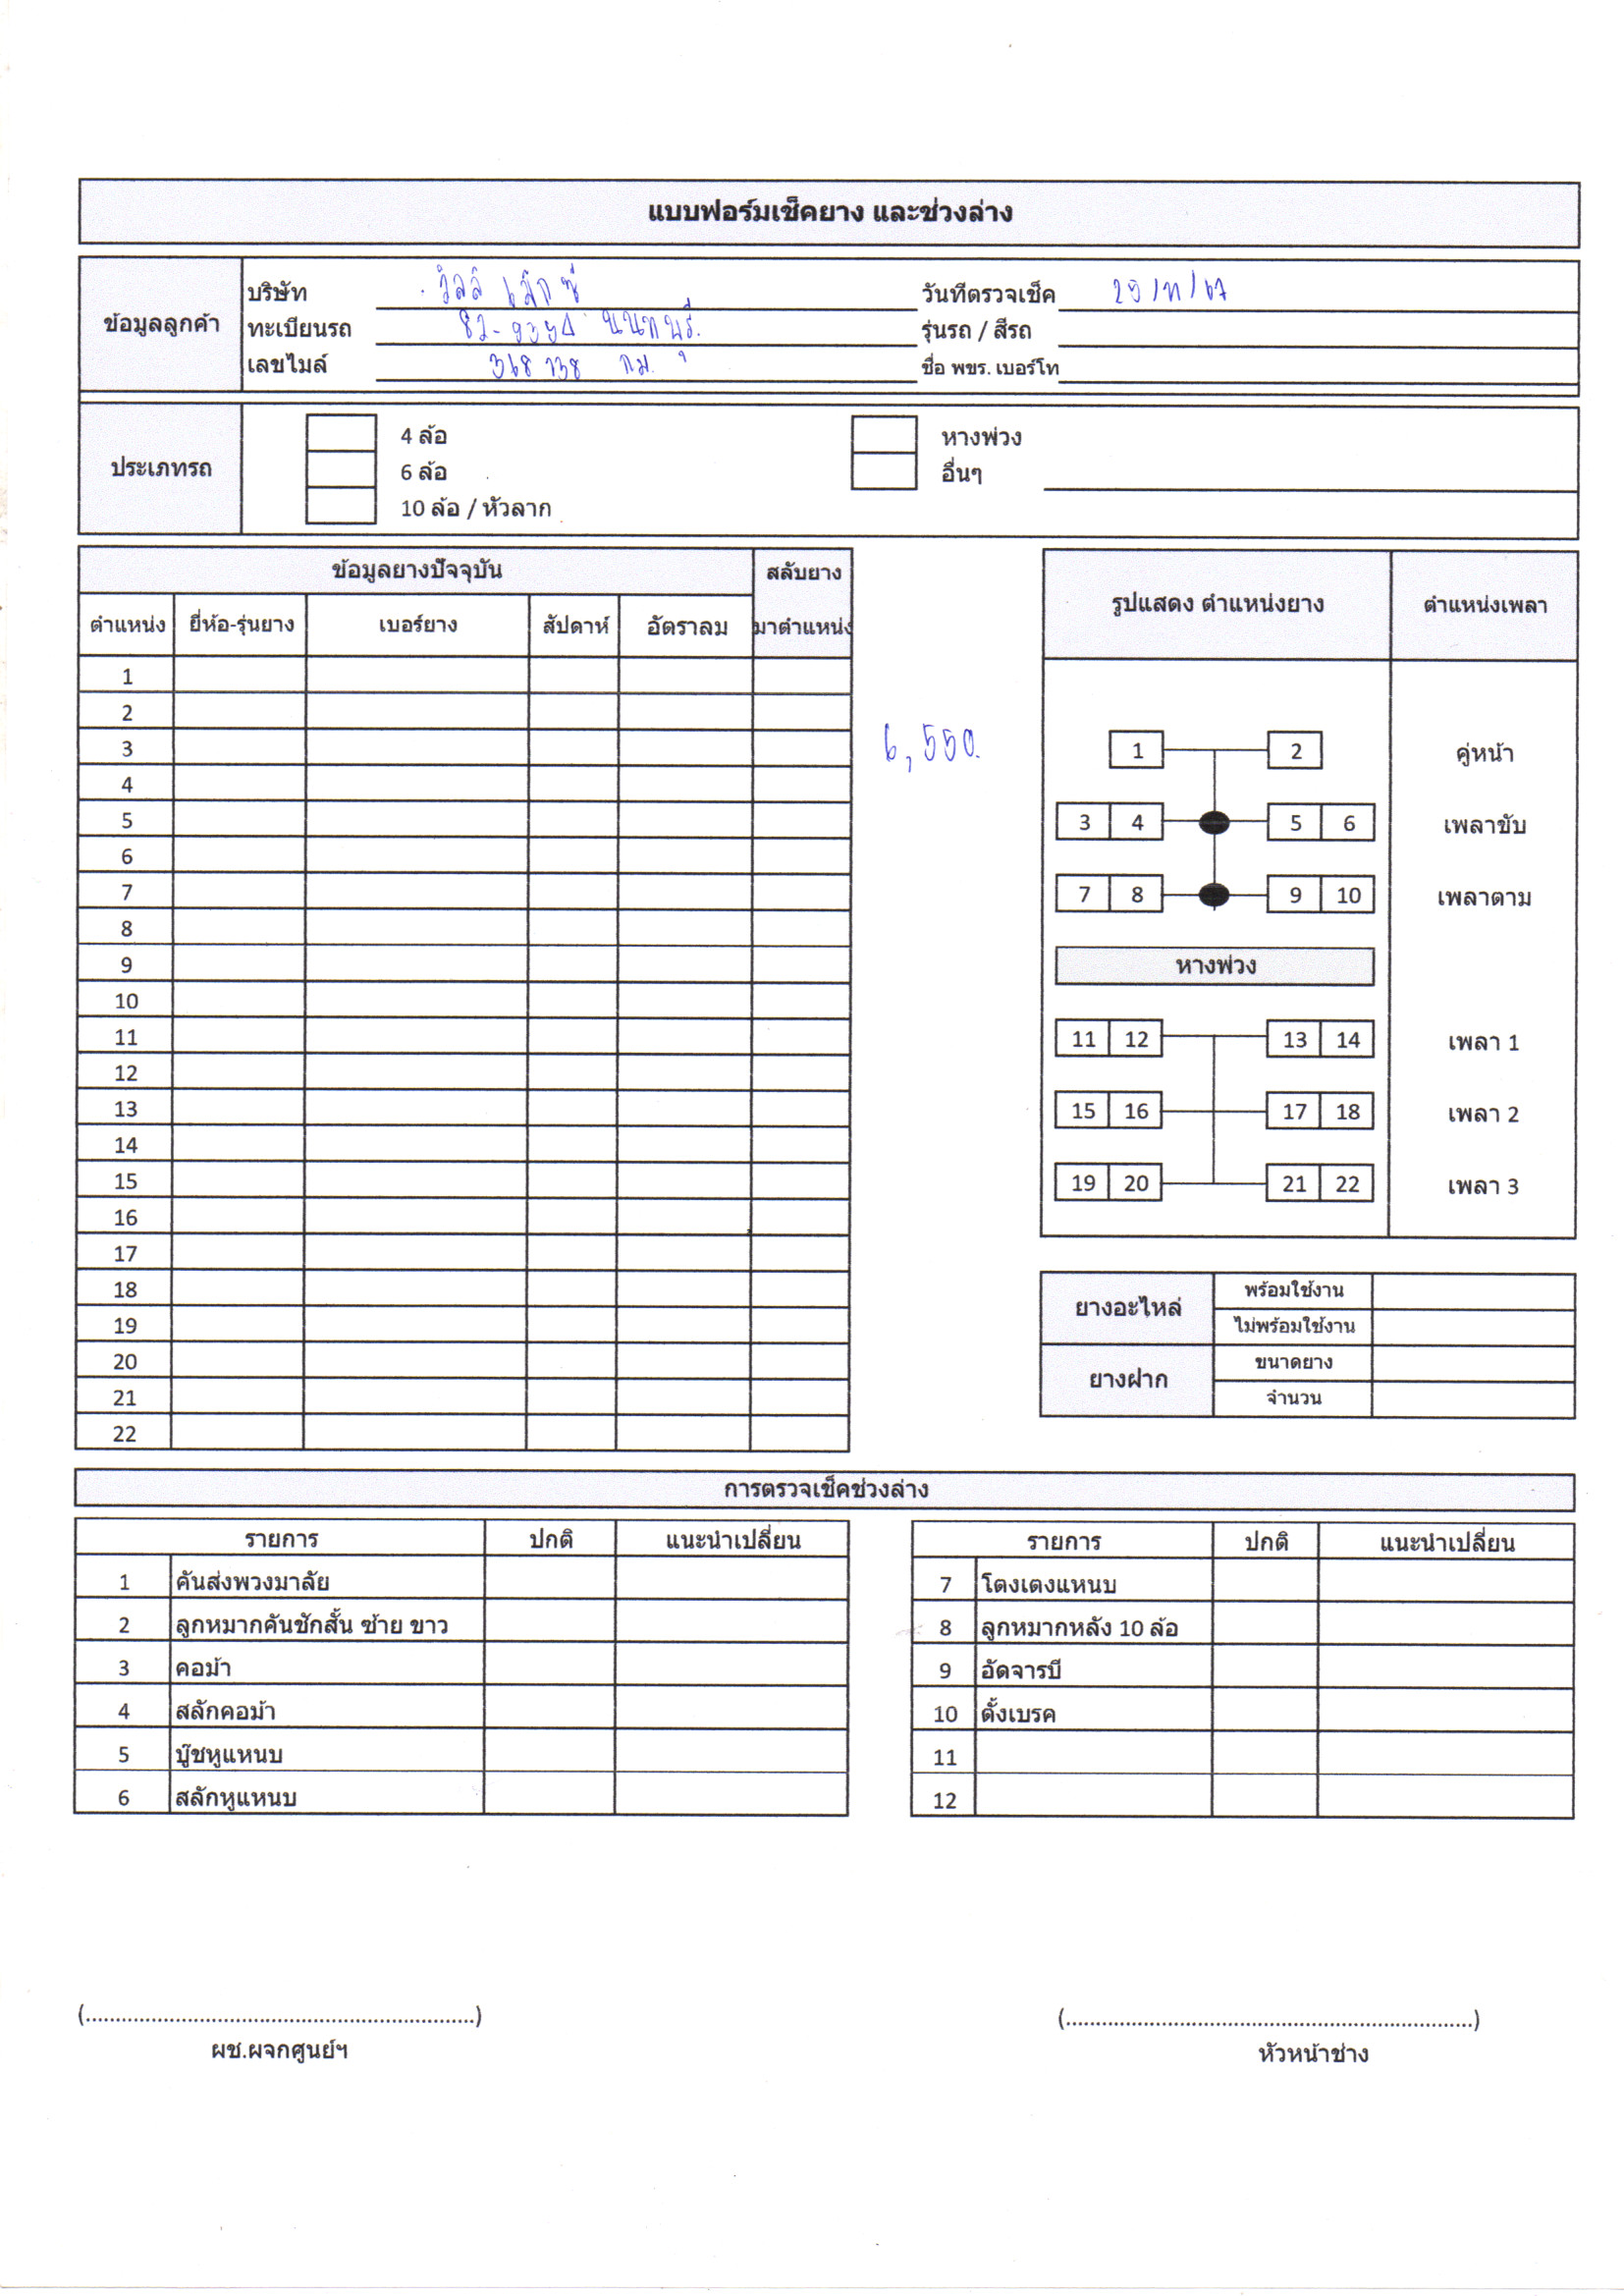 แบบฟอร์มเช็คยาง และช่วงล่าง
ข้อมูลลูกค้า
บริษัท วิลล์ แม็กซ์ วันที่ตรวจเช็ค 29/11/67
ทะเบียนรถ นนทบุรี รุ่นรถ / สีรถ
เลขไมล์ 368738 กม. ชื่อ พขร. เบอร์โท
ประเภทรถ
4 ล้อ หางพ่วง
6 ล้อ อื่นๆ
10 ล้อ / หัวลาก
ข้อมูลยางปัจจุบัน สลับยาง
ตำแหน่ง ยี่ห้อ-รุ่นยาง เบอร์ยาง สัปดาห์ อัตราลม มาตำแหน่ง
1
2
3
4
5
6
7
8
9
10
11
12
13
14
15
16
17
18
19
20
21
22
6,550.
รูปแสดง ตำแหน่งยาง ตำแหน่งเพลา
1 2 คู่หน้า
3 4 5 6 เพลาขับ
7 8 9 10 เพลาตาม
หางพ่วง
11 12 13 14 เพลา 1
15 16 17 18 เพลา 2
19 20 21 22 เพลา 3
ยางอะไหล่ พร้อมใช้งาน
ไม่พร้อมใช้งาน
ยางฝาก ขนาดยาง
จำนวน
การตรวจเช็คช่วงล่าง
รายการ ปกติ แนะนำเปลี่ยน
1 คันส่งพวงมาลัย
2 ลูกหมากคันชักสั้น ซ้าย ขาว
3 คอม้า
4 สลักคอม้า
5 บู๊ชหูแหนบ
6 สลักหูแหนบ
รายการ ปกติ แนะนำเปลี่ยน
7 โตงเตงแหนบ
8 ลูกหมากหลัง 10 ล้อ
9 อัดจารบี
10 ตั้งเบรค
11
12
(.................................................................)
ผช.ผจกศูนย์ฯ
(....................................................................)
หัวหน้าช่าง